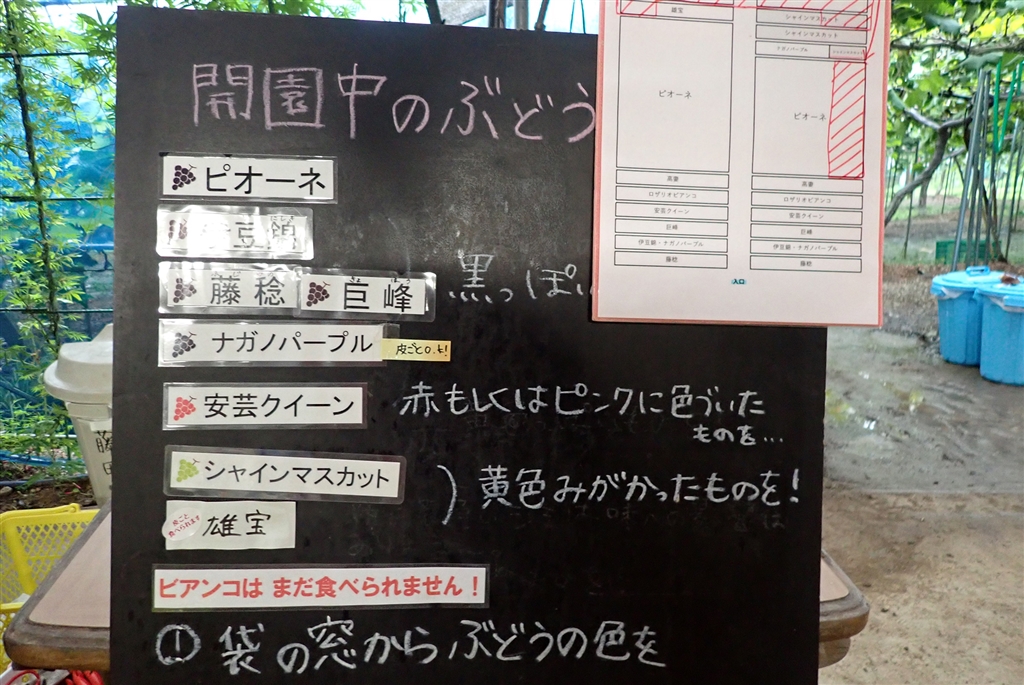 開園中のぶどう
ピオーネ
豆錦
藤稔 巨峰 黒っぽい
ナガノパープル 皮ごとO.K!
安芸クイーン 赤もしくはピンクに色づいた
ものを…
シャインマスカット
黄色みがかったものを!
皮ごと食べられます 雄宝
ビアンコは まだ食べられません!
① 袋の窓からぶどうの色を
雄宝
ピオーネ
高妻
ロザリオビアンコ
安芸クイーン
巨峰
伊豆錦・ナガノパープル
藤稔
シャインマスカット
シャインマスカット
ナガノパープル
ピオーネ
高妻
ロザリオビアンコ
安芸クイーン
巨峰
伊豆錦・ナガノパープル
藤稔
入口